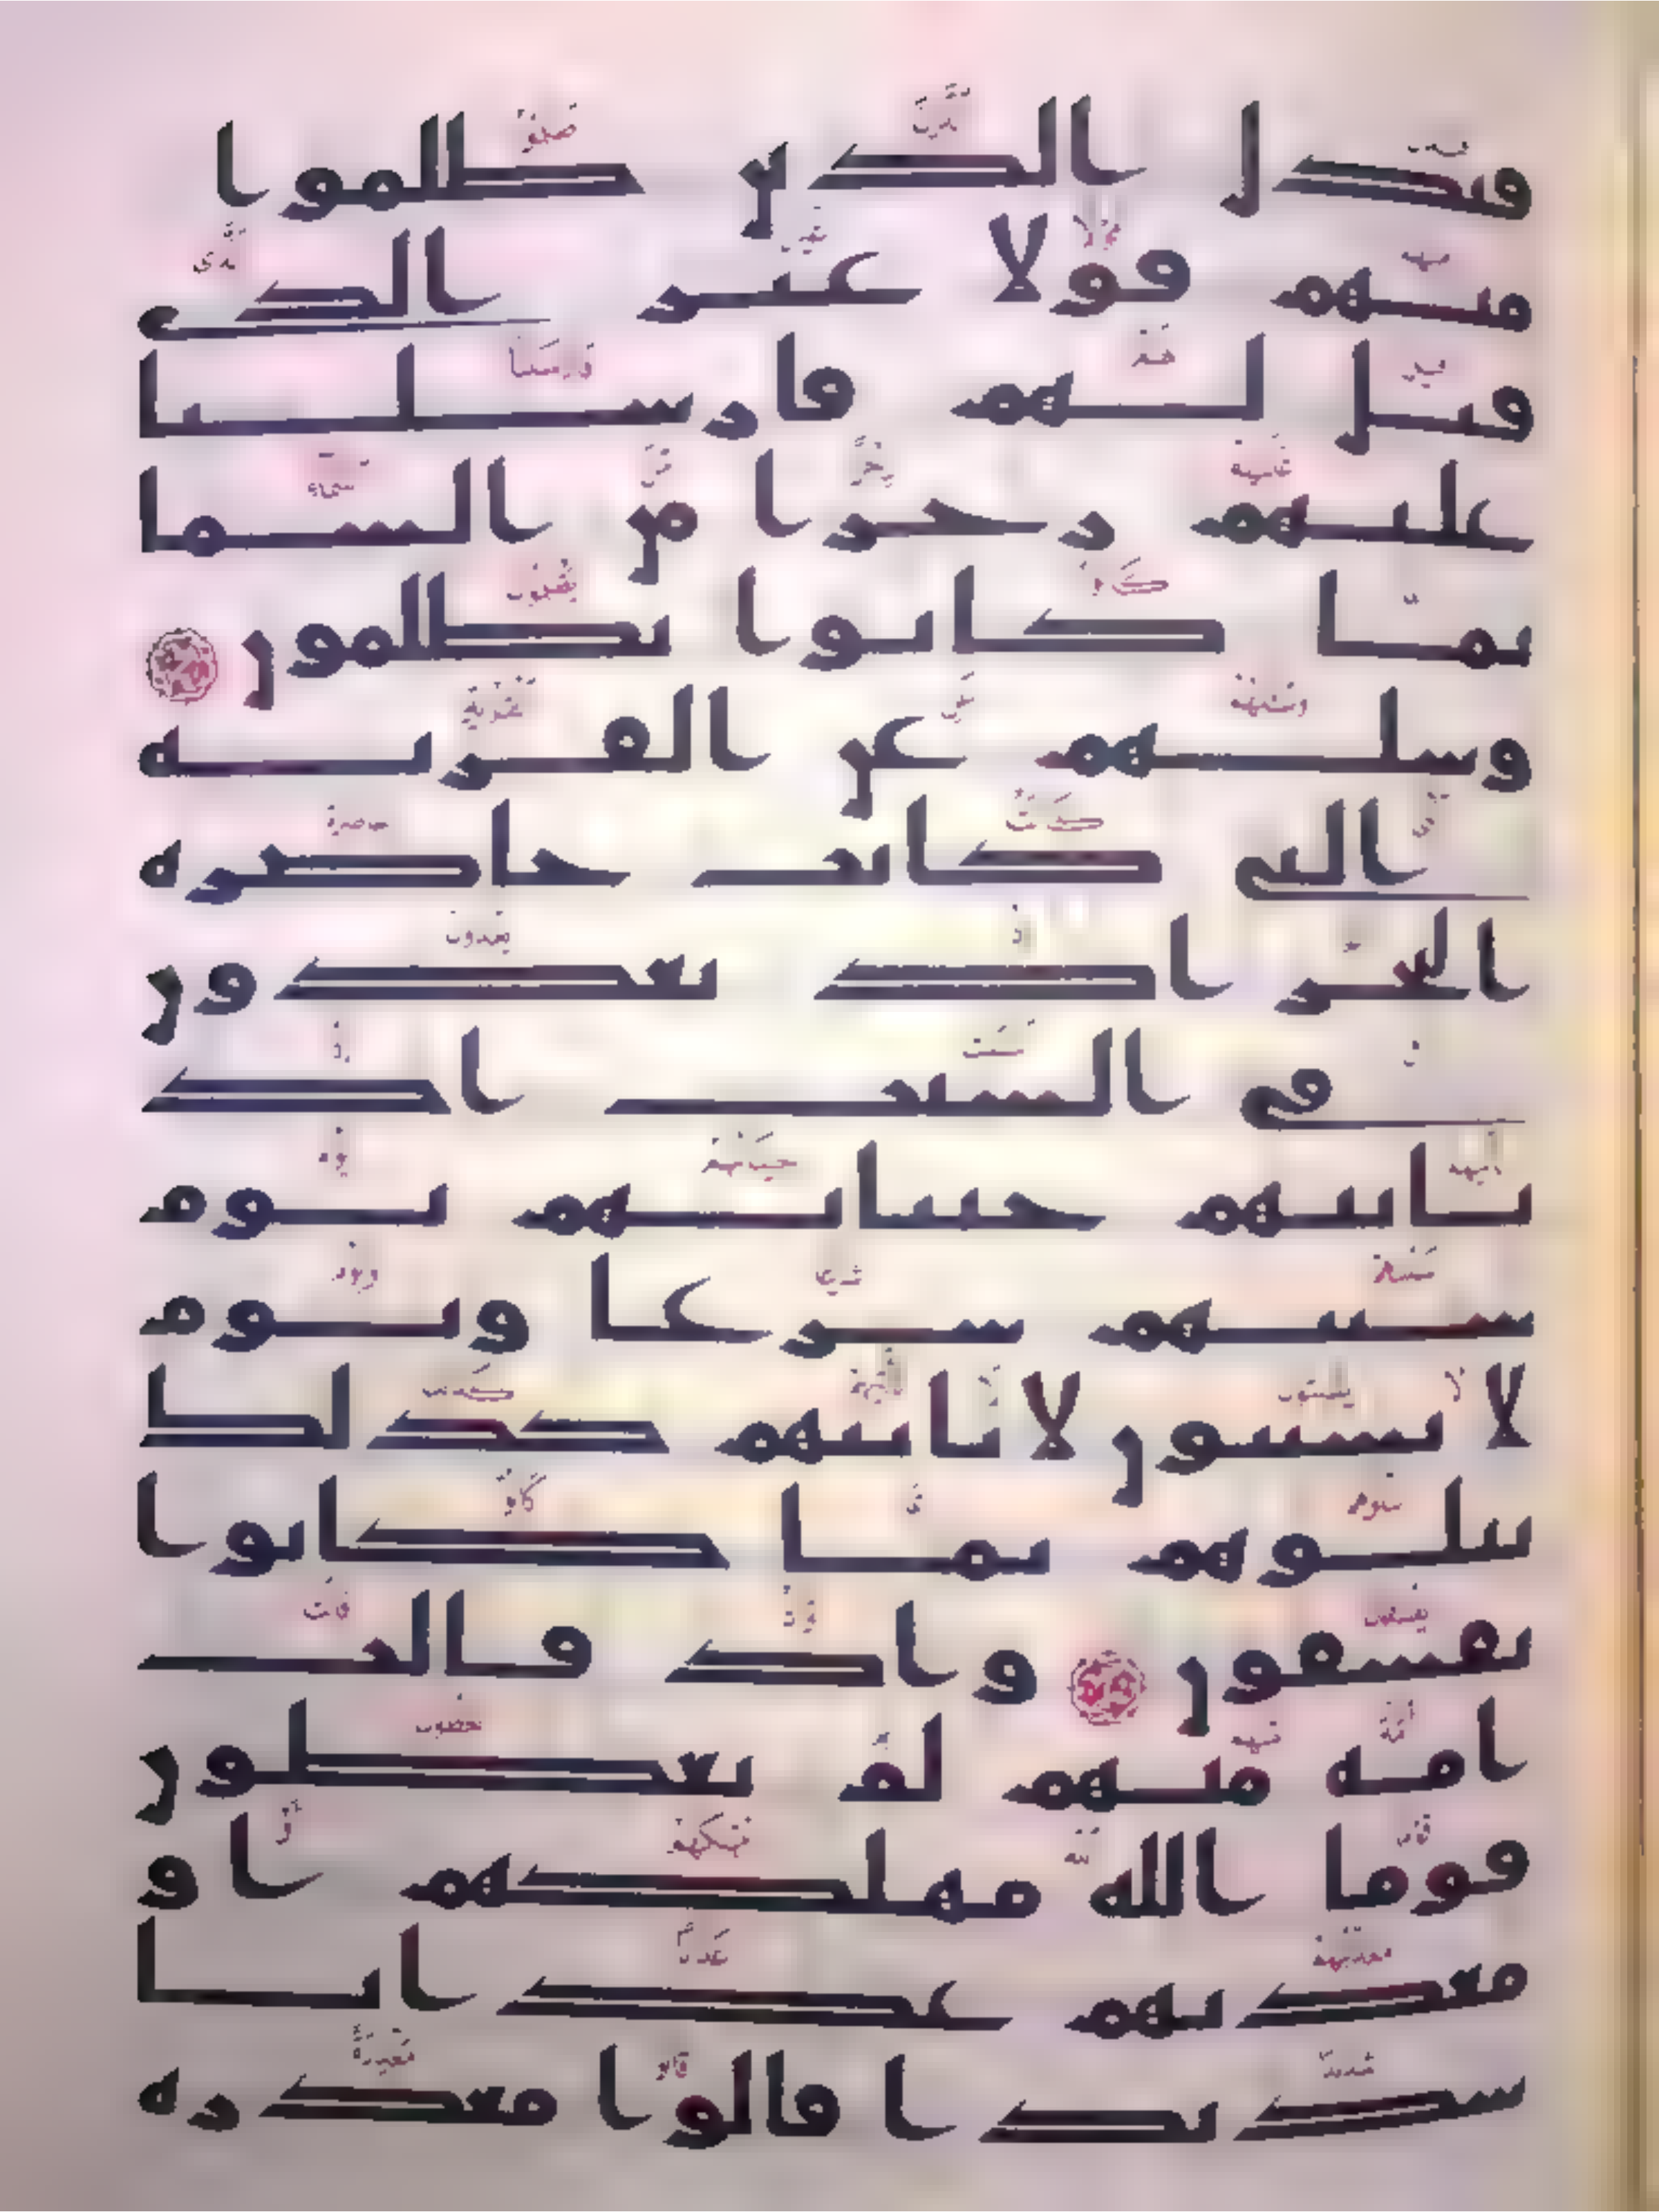 فبدل الذين ظلموا
منهم قولا غير الذي
قيل لهم فارسلنا
عليهم رجزا من السما
بما كانوا يظلمون
وسلهم عن القريه
التي كانت حاضره
البحر اذ يعدون
في السبت اذ
تاتيهم حيتانهم يوم
سبتهم شرعا ويوم
لا يسبتون لا تاتيهم كذلك
نبلوهم بما كانوا
يفسقون واذ قالت
امه منهم لم تعظون
قوما الله مهلكهم او
معذبهم عذابا
شديدا قالوا معذره